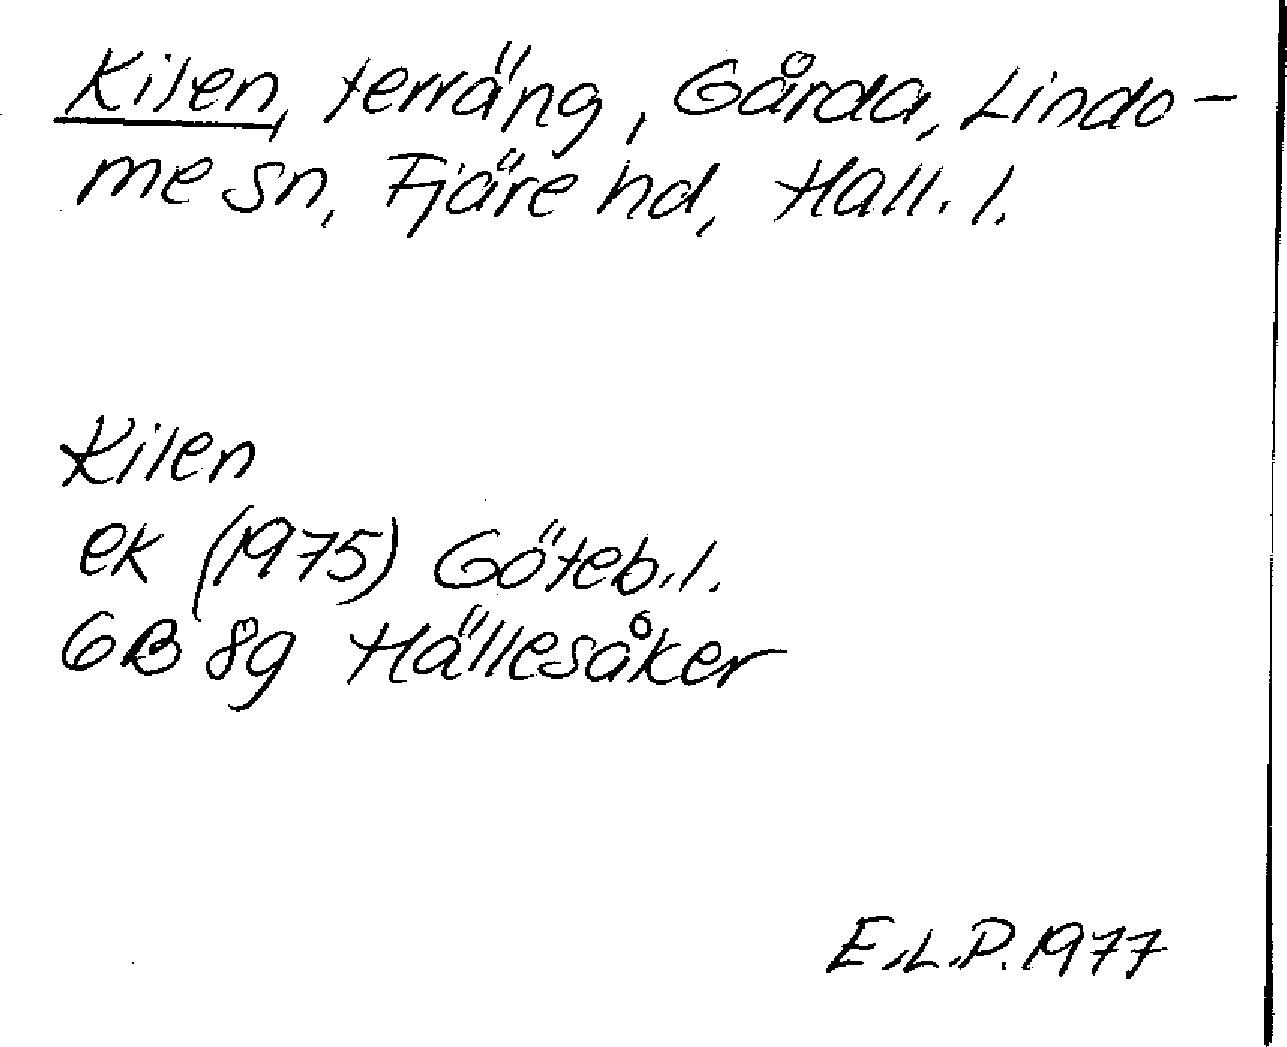 Kilen, terräng, Gårda, Lindo-
me sn, Fjäre hd, Hall. l.
Kilen
ek (1975) Göteb. l.
6B 8g Hällesåker
E.L.P. 1977